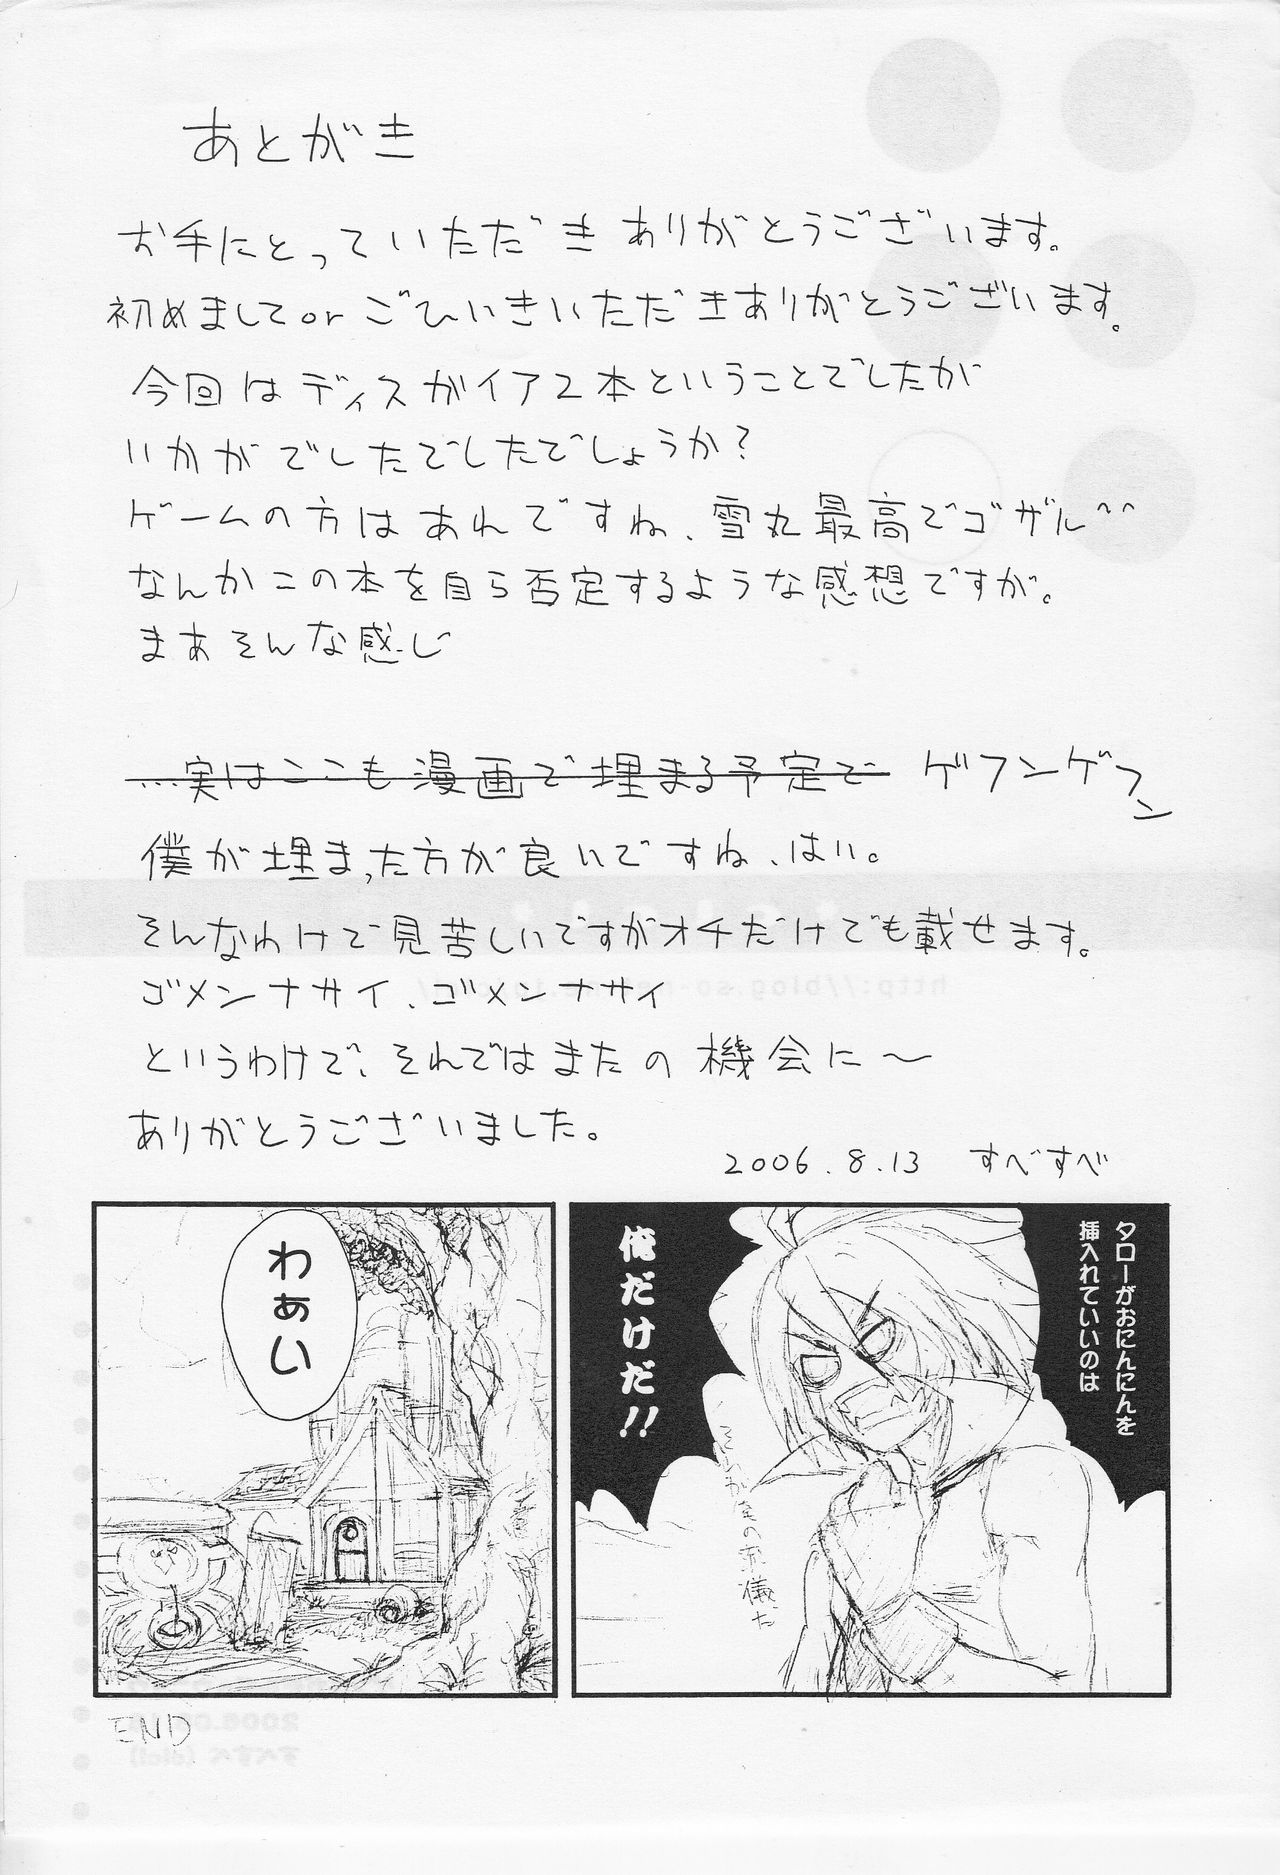 あとがき
お手にとっていただきありがとうございます。
初めましてorごひいきいただきありがとうございます。
今回はディスガイア2本ということでしたが
いかがでしたでしたでしょうか?
ゲームの方はあれですね、雪丸最高でゴザル^^
なんかこの本を自ら否定するような感想ですが。
まあそんな感じ
…実はここも漫画で埋まる予定で ゲフンゲフン
僕が埋まった方が良いですね、はい。
そんなわけで見苦しいですがオチだけでも載せます。
ゴメンナサイ、ゴメンナサイ
というわけで、それではまたの機会に〜
ありがとうございました。
2006.8.13 すべすべ
わぁい
END